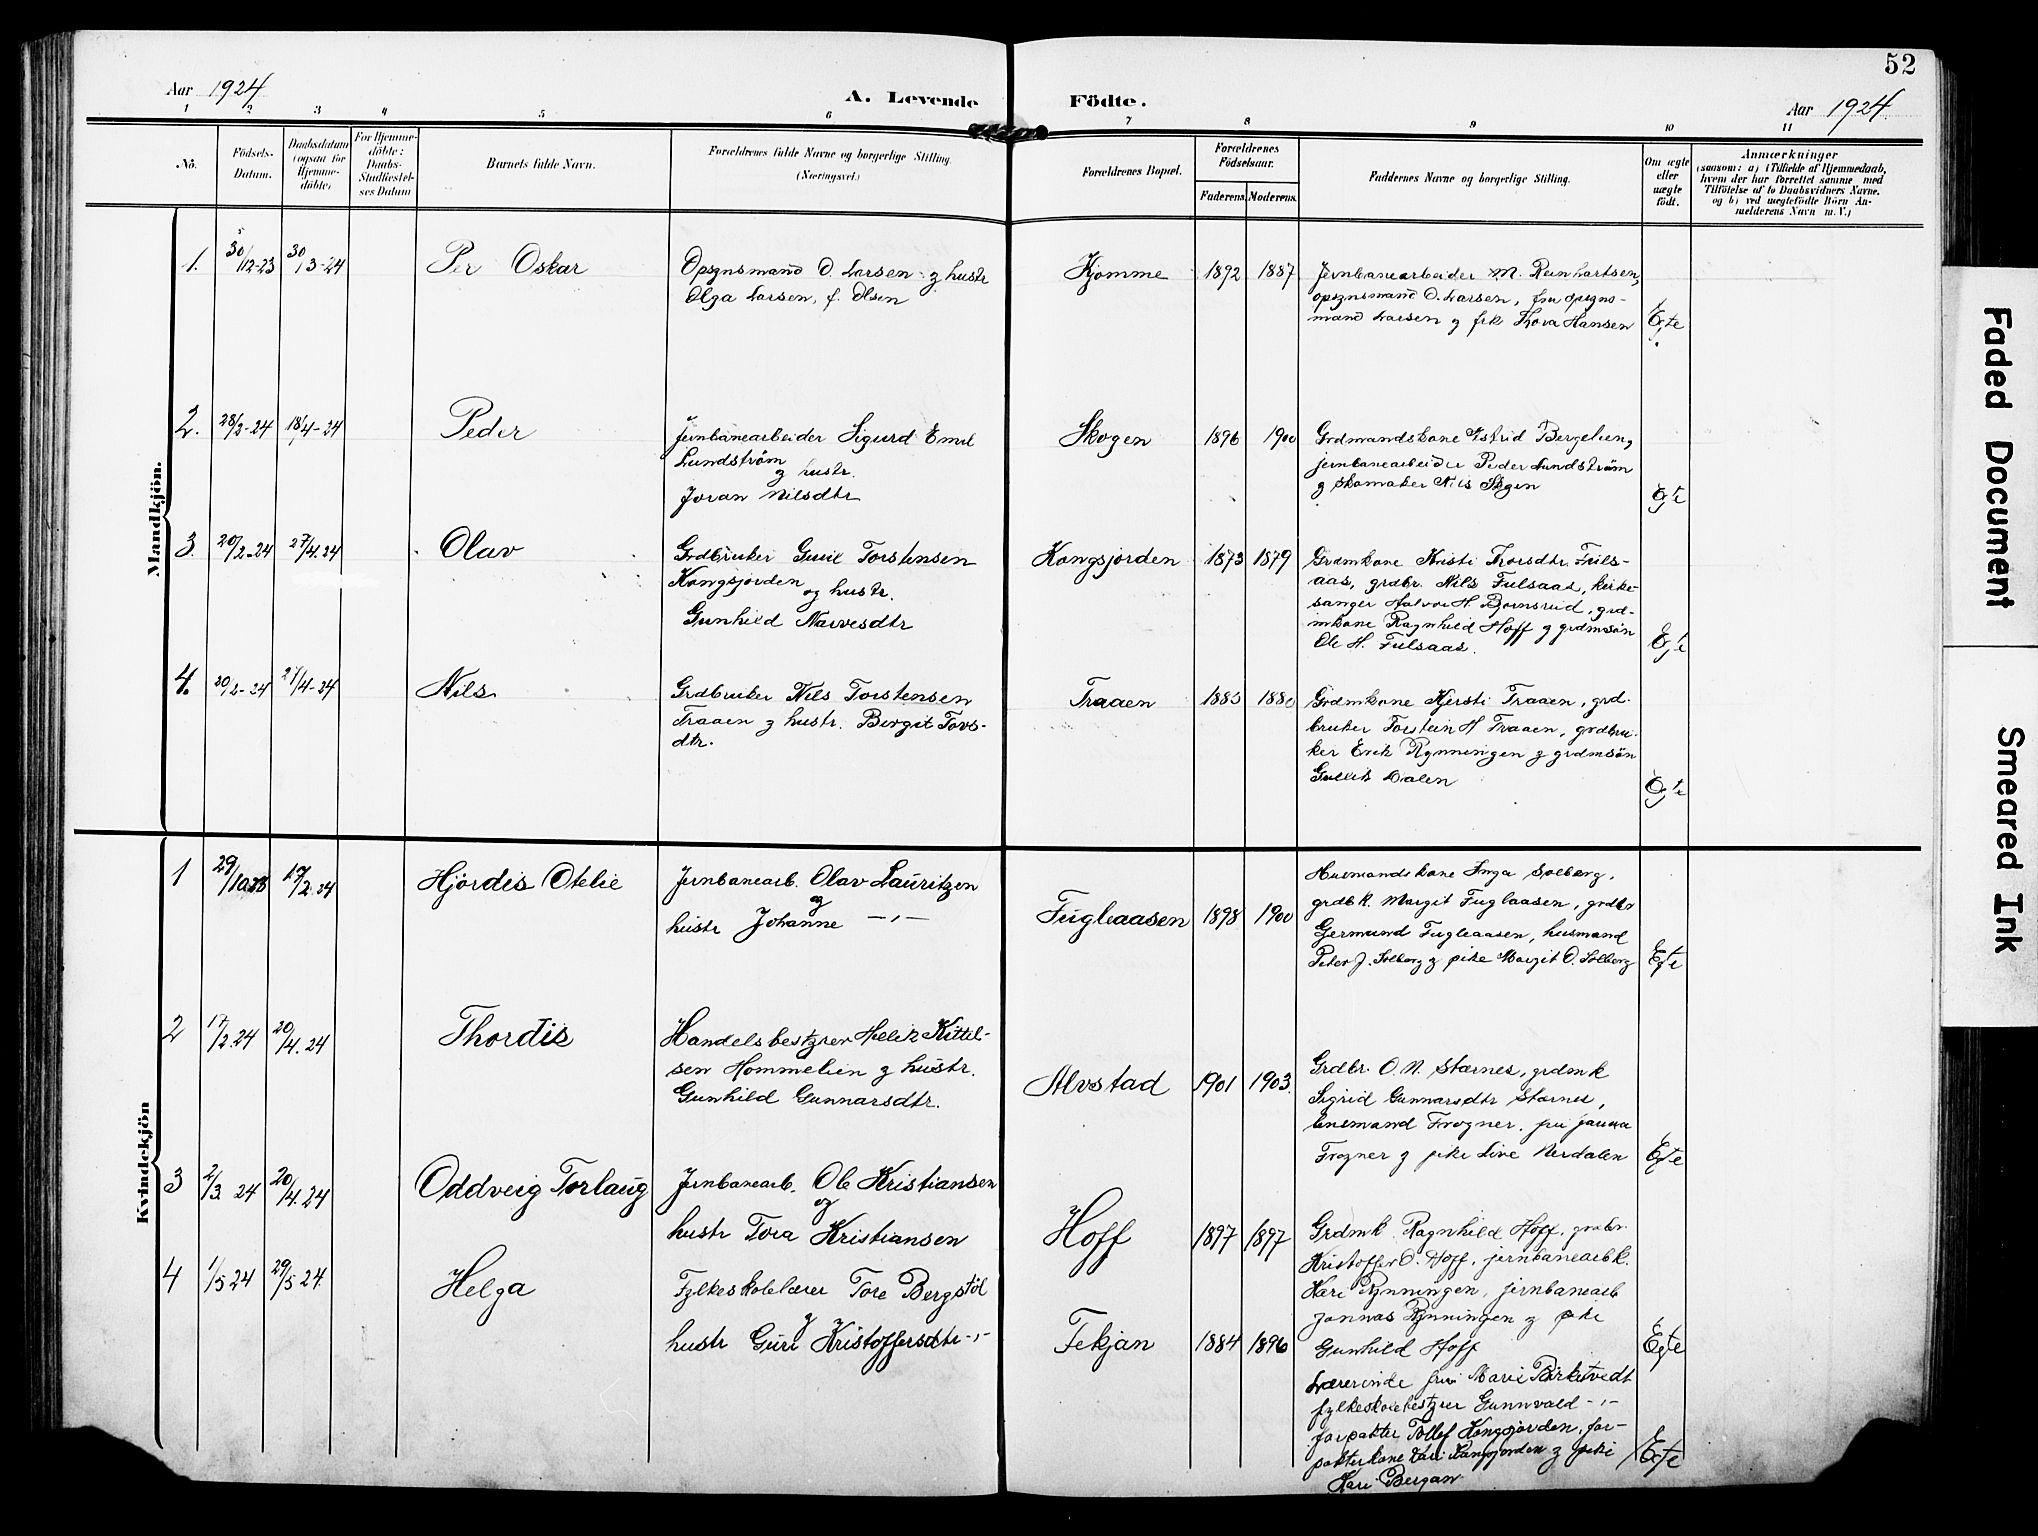 52
Aar 1924
A. Levende Födte.
Aar 1924
1 2 3 4 5 6 7 8 9 10 11
No.
Födsels-Datum.
Daabsdatum (ogsaa for Hjemme-döbte)
For Hjemme-döbte: Daabs-Stadfæstel-ses Datum
Barnets fulde Navn.
Forældrenes fulde Navne og borgerlige Stilling. (Næringsvei.)
Forældrenes Bopæl.
Forældrenes Födselsaar.
Faderens Moderens.
Faddernes Navne og borgerlige Stilling.
Om ægte eller uægte födt.
Anmærkninger
(saasom: a) i Tilfælde af Hjemmedaab,
hvem der har forrettet samme med
Tilföielse af to Daabsvidners Navne.
og b) ved uægtefödte Börn An-
melderens Navn m. V.)
Mandkjön.
1. 30/12-23 30/3-24 Per Oskar
Opsynsmand O. Larsen og hustr
Olga Larsen, f. Olsen
Kjomme 1892 1887
Jernbanearbeider M. Reinhartsen,
opsynsmand O. Larsen, fru opsyns-
mand Larsen og frk Thova Hansen
Egte
2. 28/2-24 18/4-24 Peder
Jernbanearbeider Sigurd Emil
Lundström
og hustr.
Joran Nilsdtr
Skogen 1896 1900
Grdmandskone Astrid Bergelien,
jernbanearbeider Peder Lundström
og skomaker Nils Skogen
Egte
3. 20/2-24 27/4.24 Olav
Grdbruker Guul Torstensen
Kongsjorden og hustr.
Gunhild Narvesdtr
Kongsjorden 1873 1879
Grdmkone Kristi Thorsdtr. Fuls-
aas, grdbr. Nils Fulsaas, kirke-
sanger Halvor H. Bjornsrud, grd-
mkone Ragnhild Hoff og grdmsön
Ole H. Fulsaas.
Egte
4. 20/2-24 27/4-24 Nils
Grdbruker Nils Torstensen
Traaen og hustr. Bergit Tovs-
dtr.
Traaen 1883 1880
Grdmkone Kjersti Traaen, grd-
bruker Torstein H Traaen, grdbru-
ker Erik Rynningen og grdmsön
Gullik Dalen
Egte
Kvindekjön
1 29/10.23 17/2.24 Hjördis Otelie
Jernbanearb. Olav Lauritzen
og
hustr Johanne -,-
Fugleaasen 1898 1900
Husmandskone Inga Solberg,
grdbk. Margit Fuglaasen, grdbr
Germund Fugleaasen, husmand
Peter J. Solberg og pike Margit O. Solberg
Egte
2 17/2.24 20/4.24 Thordis
Handelsbestyrer Helik Kittil-
sen Hommelien og hustr.
Gunhild Gunnarsdtr.
Alvstad 1901 1903.
Grdbr. O. N. Stærnes, grdmk
Sigrid Gunnarsdtr Stærnes,
lensmand Frogner, fru Janna
Frogner og pike Live Nerdalen
Egte
3 2/3.24 20/4.24 Oddveig Torlaug
Jernbanearb. Ole Kristiansen
og
hustr Tora Kristiansen
Hoff 1897 1897
Grdmk Ragnhild Hoff, grdbr.
Kristoffer O. Hoff, jernbanearbk.
Kari Rynningen, jernbanearb
Jonnas Rynningen og pike
Gunhild Hoff
Egte
4 1/5 24 29/5 24. Helga
Fylkeskolelærer Tore Bergstöl
og
hustr Guri Kristoffersdtr -,-
Tekjan 1884 1896
Lærerinde fru Marie Birketvedt
fylkeskolebestyrer Gunnvald -,-
forpakter Tollef Kongsjorden, for-
pakterkone Kari Kongsjorden og pike
Kari Bergan
Egte
Faded Document
Smeared Ink